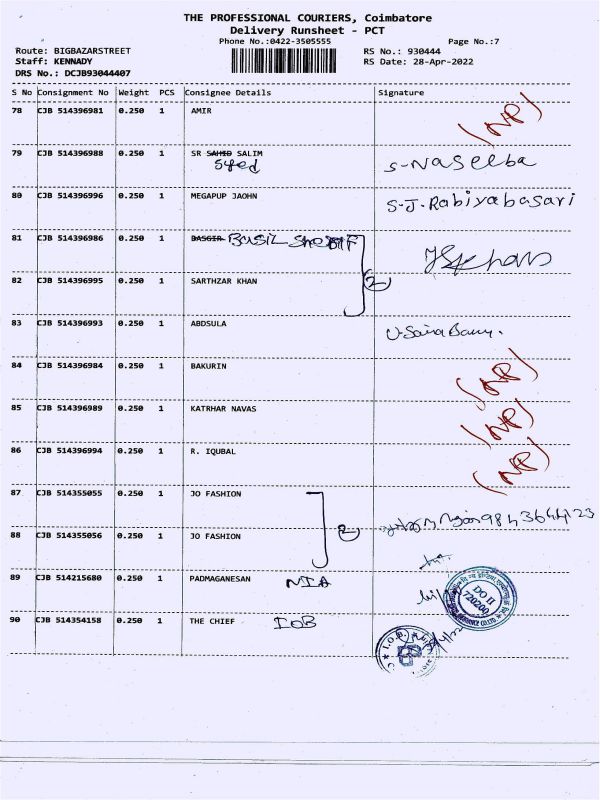 THE PROFESSIONAL COURIERS, Coimbatore
Delivery Runsheet - PCT
Phone No.:0422-3505555 Page No.:7
Route: BIGBAZARSTREET RS No.: 930444
Staff: KENNADY RS Date: 28-Apr-2022
DRS No.: DCJB93044407
S No Consignment No Weight PCS Consignee Details Signature
78 CJB 514396981 0.250 1 AMIR (NP)
79 CJB 514396988 0.250 1 SR SAHID SALIM S-Naseeba
Syed
80 CJB 514396996 0.250 1 MEGAPUP JAOHN S-J. Rabiyabasari
81 CJB 514396986 0.250 1 BASGIR BASIL
82 CJB 514396995 0.250 1 SARTHZAR KHAN 2
83 CJB 514396993 0.250 1 ABDSULA
84 CJB 514396984 0.250 1 BAKURIN (NP)
85 CJB 514396989 0.250 1 KATRHAR NAVAS (NP)
86 CJB 514396994 0.250 1 R. IQUBAL (NP)
87 CJB 514355055 0.250 1 JO FASHION 9843644123
88 CJB 514355056 0.250 1 JO FASHION 2
89 CJB 514215680 0.250 1 PADMAGANESAN NIA
DO II
720200
90 CJB 514354158 0.250 1 THE CHIEF IOB